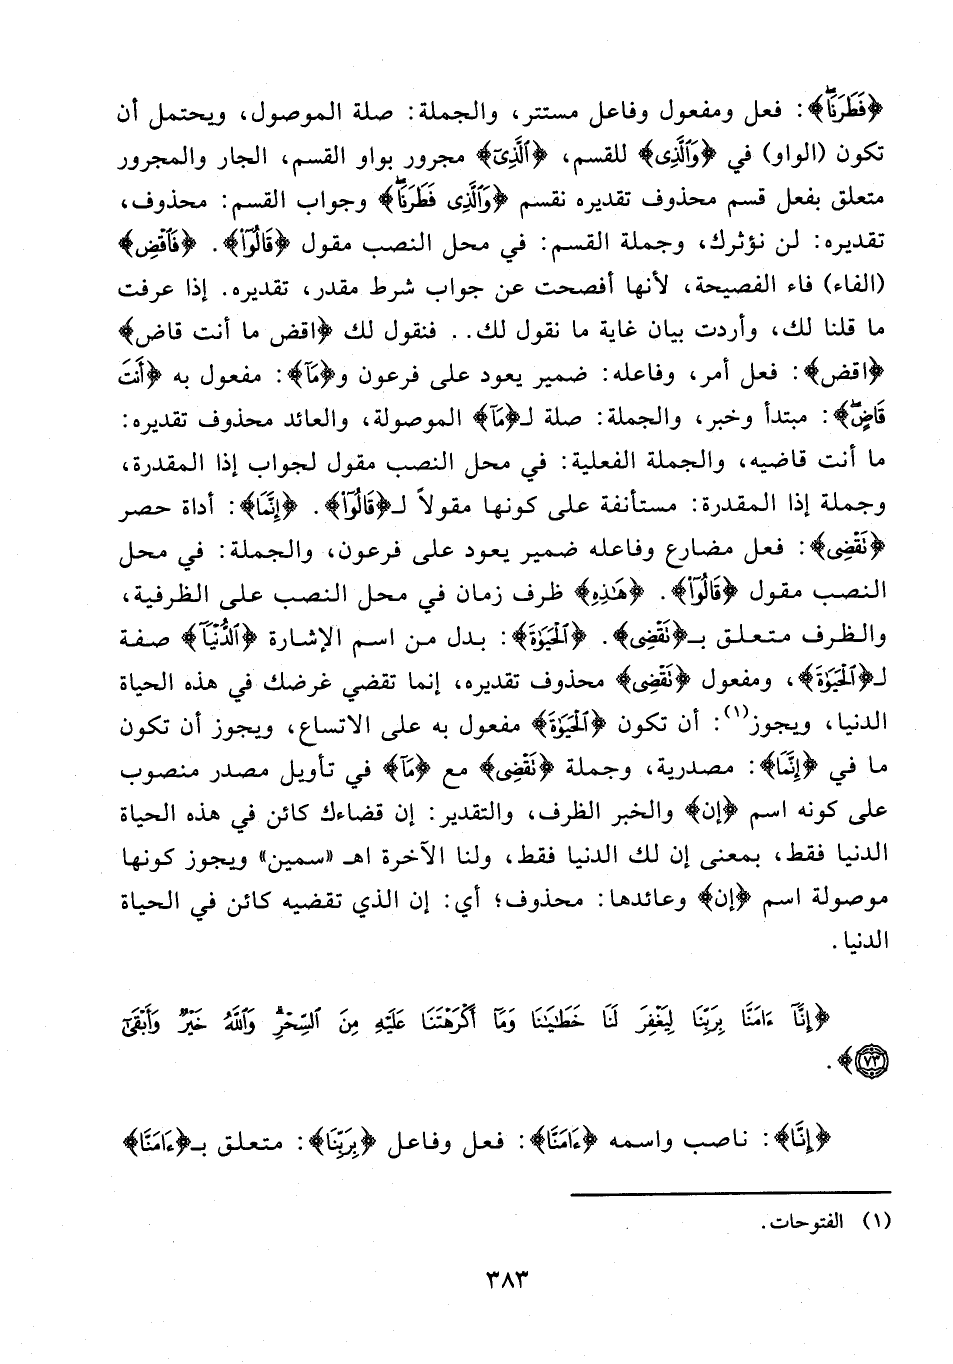 ﴿فَطَرَنَا﴾: فعل ومفعول وفاعل مستتر، والجملة: صلة الموصول، ويحتمل أن
تكون (الواو) في ﴿وَٱلَّذِى﴾ للقسم، ﴿ٱلَّذِىٓ﴾ مجرور بواو القسم، الجار والمجرور
متعلق بفعل قسم محذوف تقديره نقسم ﴿وَٱلَّذِى فَطَرَنَاۖ﴾ وجواب القسم: محذوف،
تقديره: لن نؤثرك، وجملة القسم: في محل النصب مقول ﴿قَالُوٓا۟﴾. ﴿فَٱقْضِ﴾
(الفاء) فاء الفصيحة، لأنها أفصحت عن جواب شرط مقدر، تقديره. إذا عرفت
ما قلنا لك، وأردت بيان غاية ما نقول لك.. فنقول لك ﴿اقض ما أنت قاض﴾
﴿اقض﴾: فعل أمر، وفاعله: ضمير يعود على فرعون و﴿مَآ﴾: مفعول به ﴿أَنتَ
قَاضٍۖ﴾: مبتدأ وخبر، والجملة: صلة لـ﴿مَآ﴾ الموصولة، والعائد محذوف تقديره:
ما أنت قاضيه، والجملة الفعلية: في محل النصب مقول لجواب إذا المقدرة،
وجملة إذا المقدرة: مستأنفة على كونها مقولاً لـ﴿قَالُوٓا۟﴾. ﴿إِنَّمَا﴾: أداة حصر
﴿نَقْضِى﴾: فعل مضارع وفاعله ضمير يعود على فرعون، والجملة: في محل
النصب مقول ﴿قَالُوٓا۟﴾. ﴿هَٰذِهِ﴾ ظرف زمان في محل النصب على الظرفية،
والظرف متعلق بـ﴿نَقْضِى﴾. ﴿ٱلْحَيَوٰةَ﴾: بدل من اسم الإشارة ﴿ٱلدُّنْيَآ﴾ صفة
لـ﴿ٱلْحَيَوٰةَ﴾، ومفعول ﴿نَقْضِى﴾ محذوف تقديره، إنما تقضي غرضك في هذه الحياة
الدنيا، ويجوز(١): أن تكون ﴿ٱلْحَيَوٰةَ﴾ مفعول به على الاتساع، ويجوز أن تكون
ما في ﴿إِنَّمَا﴾: مصدرية، وجملة ﴿نَقْضِى﴾ مع ﴿مَآ﴾ في تأويل مصدر منصوب
على كونه اسم ﴿إن﴾ والخبر الظرف، والتقدير: إن قضاءك كائن في هذه الحياة
الدنيا فقط، بمعنى إن لك الدنيا فقط، ولنا الآخرة اهـ «سمين» ويجوز كونها
موصولة اسم ﴿إن﴾ وعائدها: محذوف؛ أي: إن الذي تقضيه كائن في الحياة
الدنيا.
﴿إِنَّآ ءَامَنَّا بِرَبِّنَا لِيَغْفِرَ لَنَا خَطَٰيَٰنَا وَمَآ أَكْرَهْتَنَا عَلَيْهِ مِنَ ٱلسِّحْرِۗ وَٱللَّهُ خَيْرٌ وَأَبْقَىٰٓ
٧٣﴾.
﴿إِنَّا﴾: ناصب واسمه ﴿ءَامَنَّا﴾: فعل وفاعل ﴿بِرَبِّنَا﴾: متعلق بـ﴿ءَامَنَّا﴾
(١) الفتوحات.
٣٨٣